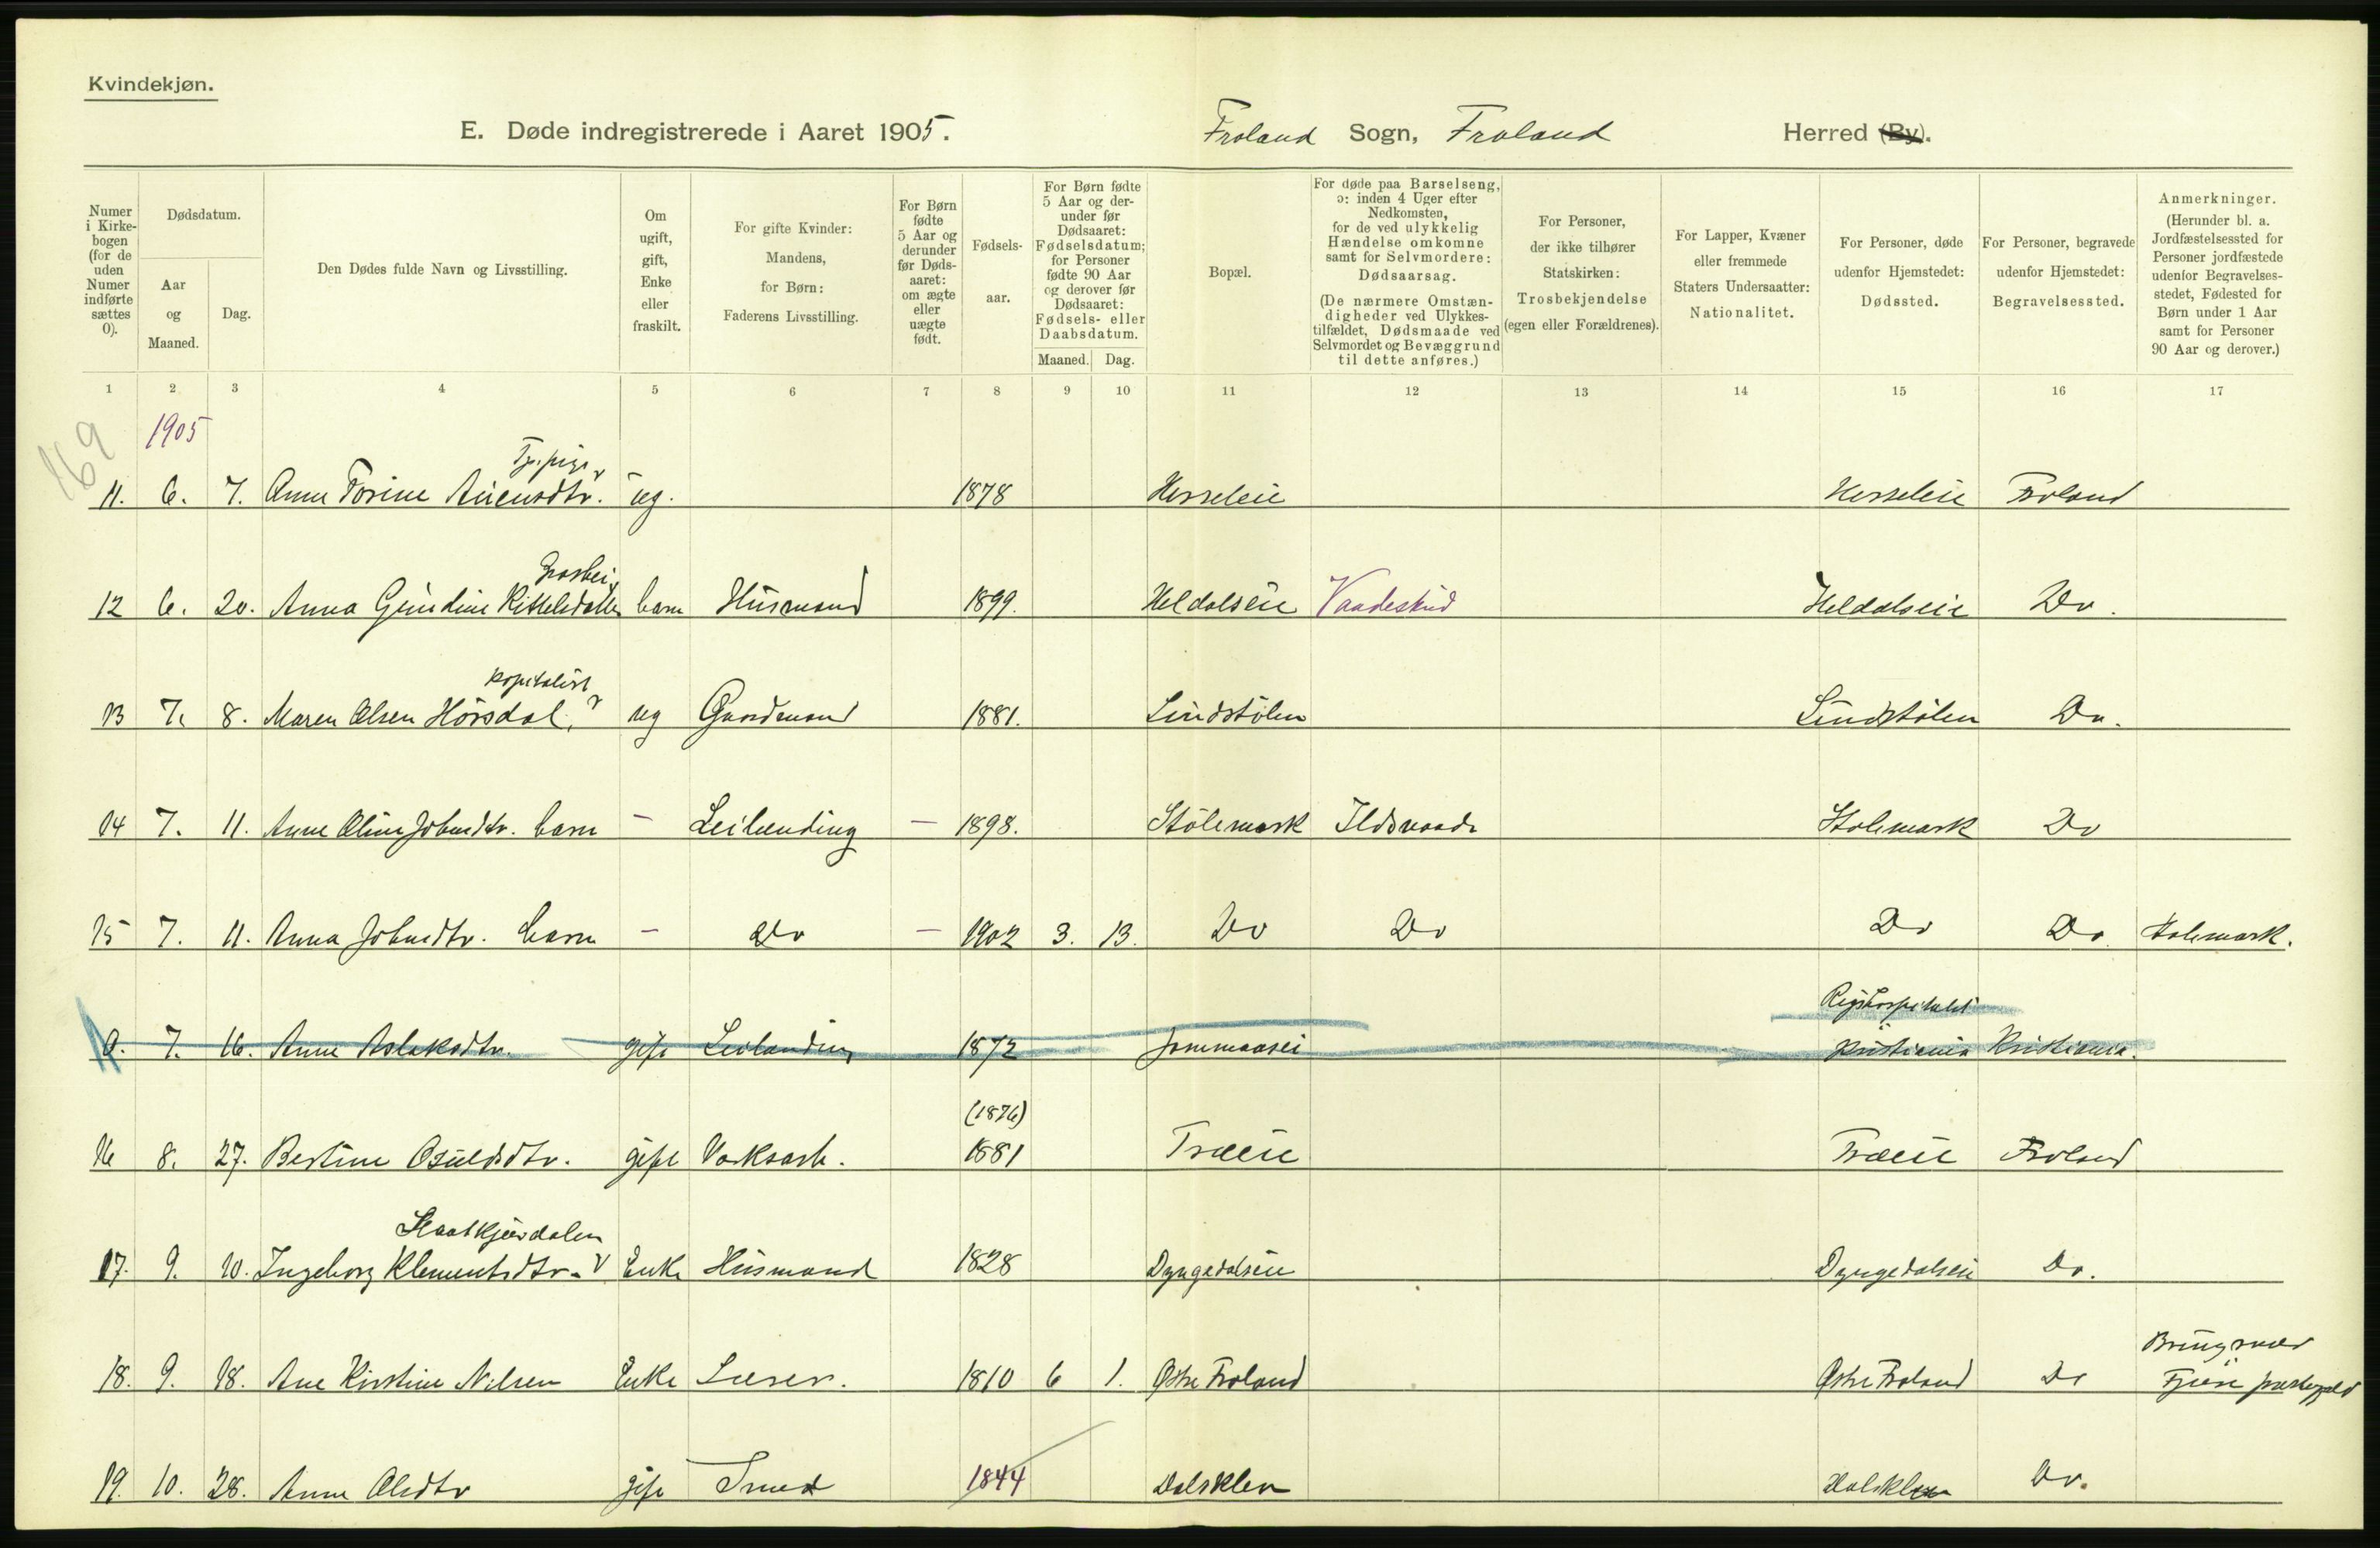 Kvindekjøn.
E. Døde indregistrerede i Aaret 1905.
Froland Sogn, Froland Herred (By).
Numer i Kirkebogen (for de uden Numer indførte sættes 0).
Dødsdatum.
Aar og Maaned.
Dag.
Den Dødes fulde Navn og Livsstilling.
Om ugift, gift, Enke eller fraskilt.
For gifte Kvinder: Mandens, for Børn: Faderens Livsstilling.
For Børn fødte 5 Aar og derunder før Dødsaaret: om ægte eller uægte født.
Fødselsaar.
For Børn fødte 5 Aar og derunder før Dødsaaret: Fødselsdatum; for Personer fødte 90 Aar og derover før Dødsaaret: Fødsels- eller Daabsdatum.
Maaned. Dag.
Bopæl.
For døde paa Barselseng, ɔ: inden 4 Uger efter Nedkomsten, for de ved ulykkelig Hændelse omkomne samt for Selvmordere: Dødsaarsag.
(De nærmere Omstændigheder ved Ulykkestilfældet, Dødsmaade ved Selvmordet og Bevæggrund til dette anføres.)
For Personer, der ikke tilhører Statskirken: Trosbekjendelse (egen eller Forældrenes).
For Lapper, Kvæner eller fremmede Staters Undersaatter: Nationalitet.
For Personer, døde udenfor Hjemstedet: Dødssted.
For Personer, begravede udenfor Hjemstedet: Begravelsessted.
Anmerkninger.
(Herunder bl. a. Jordfæstelsessted for Personer jordfæstede udenfor Begravelsesstedet, Fødested for Børn under 1 Aar samt for Personer 90 Aar og derover.)
1 2 3 4 5 6 7 8 9 10 11 12 13 14 15 16 17
169
1905
Tj. pige
11. 6. 7. Anne Torine Auensdtr. ug. 1878 Hesseleie Hesseleie Froland
12 6. 20. Anna Gundine Kittelsdatter barn Husmand 1899. Heldalseie Vaadeskud Heldalseie Do.
kapitalist
13 7. 8. Maren Olsen Hörsdal, ug Gaardmand 1881. Lindstölen Lindstölen Do.
14 7. 11. Anne Oline Johnsdtr. barn - Leilending - 1898. Stölemark Ildsvaade Stolemark Do
15 7. 11. Anna Johnsdtr. barn - Do - 1902 3. 13. Do Do Do Do. Stolemark.
Rigshospitalet
0. 7. 16. Anne Aslaksdtr. gift Leilending 1872 Jommaasei Kristiania Kristiania.
(1876)
16 8. 27. Bertine Osuldsdtr. gift Verksarb. 1881 Træeie Træeie Froland
17. 9. 10. Ingeborg Klementsdtr. Enke Husmand 1828 Dyngedalseie Dyngedalseie Do.
18. 9. 18. Ane Kirstine Nilsen Enke Læser. 1810 6 1. Østre Froland Østre Froland Do Fjære præstegjeld
19. 10. 28. Anne Olsdtr gift Smed 1844 Dalsklev Dalsklev Do.